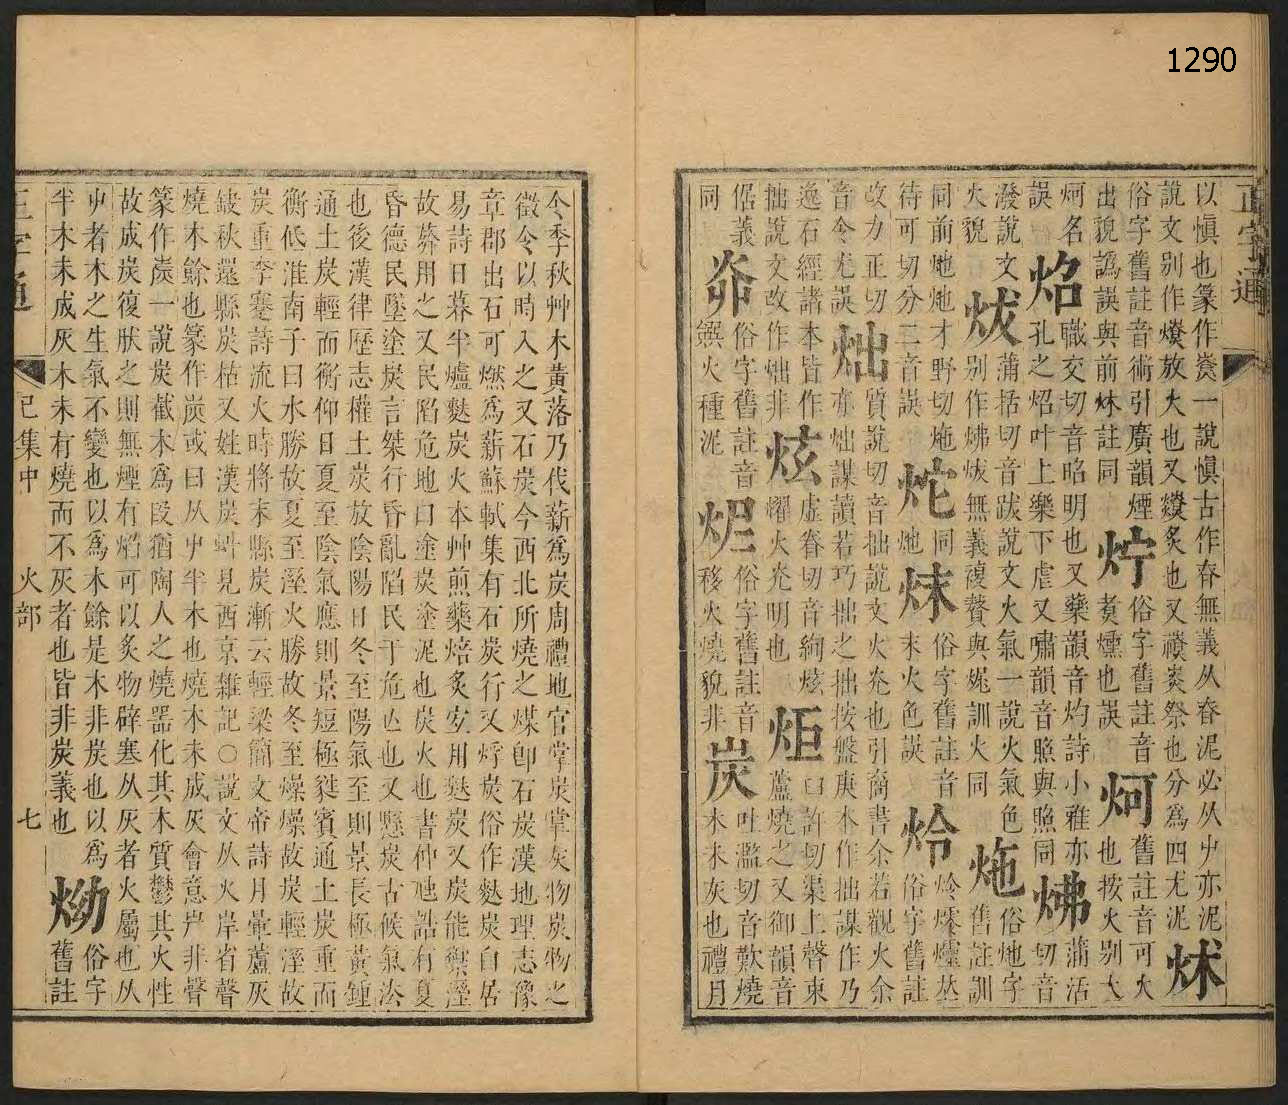 正字通
以愼也篆作㷼一說愼古作昚無義从昚泥必从屮亦泥
說文别作燎放火也又爒炙也又禷祡祭也分爲四尤泥
炢
俗字舊註音術引廣韻煙
出貌譌誤與前炑註同
㶆
俗字舊註音
煑爞也誤
炣
舊註音可火
也按火别大
炣名
誤
炤
職交切音昭明也又藥韻音灼詩小雅亦
孔之炤叶上樂下虐又嘯韻音照與照同
炥
蒲活
切音
潑說文
火貌
炦
蒲括切音跋說文火氣一說火氣色
别作炥炦無義複贅與炥訓火同
炧
俗灺字
舊註訓
同前灺灺才野切炧
待可切分二音誤
炨
同
灺
㶬
俗字舊註音
末火色誤
炩
炩爧火
俗字舊註
改力正切
音令尤誤
炪
質說切音拙說文火光也引商書余若觀火余
亦炪謀讀若巧拙之拙按盤庚本作拙謀作乃
逸石經諸本皆作
拙說文改作炪非
炫
虛眷切音絢炫
燿火光明也
炬
臼許切渠上聲束
蘆燒之又御韻音
倨義
同
俗字舊註音
饌火種泥
俗字舊註音
移火燒貌非
炭
吐濫切音歎燒
木未灰也禮月
令季秋艸木黃落乃伐薪爲炭周禮地官掌炭掌灰物炭物之
徵令以時入之又石炭今西北所燒之煤卽石炭漢地理志豫
章郡出石可燃爲薪蘇軾集有石炭行又烰炭俗作麩炭白居
易詩日暮半爐麩炭火本艸煎藥焙炙宜用麩炭又炭能禦溼
故葬用之又民陷危地曰塗炭塗泥也炭火也書仲虺誥有夏
昏德民墜塗炭言桀行昏亂陷民于危亾也又懸炭古候氣法
也後漢律歷志權土炭放陰陽日冬至陽氣至則景長極黃鍾
通土炭輕而衡仰日夏至陰氣應則景短極蕤賓通土炭重而
衡低淮南子曰水勝故夏至溼火勝故冬至燥燥故炭輕溼故
炭重李蹇詩流火時將末縣炭漸云輕梁簡文帝詩月暈蘆灰
缺秋還縣炭枯又姓漢炭虯見西京雜記○說文从火岸省聲
燒木餘也篆作炭或曰从屮半木也燒木未成灰會意屵非聲
篆作炭一說炭截木爲段猶陶人之燒器化其木質鬱其火性
故成炭復狀之則無煙有焰可以炙物辟寒从灰者火屬也从
屮者木之生氣不變也以爲木餘是木非炭也以爲
半木未成灰木未有燒而不灰者也皆非炭義也
㶭
俗字
舊註
正字通
巳集中
火部
七
1290